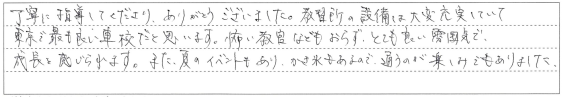 丁寧に指導してくださり、ありがとうございました。教習所の設備は大変充実していて
東京で最も良い車校だと思います。怖い教官などもおらず、とても良い雰囲気で
成長を感じられます。また、夏のイベントもあり、かき氷もあるので、通うのが楽しみでもありました。